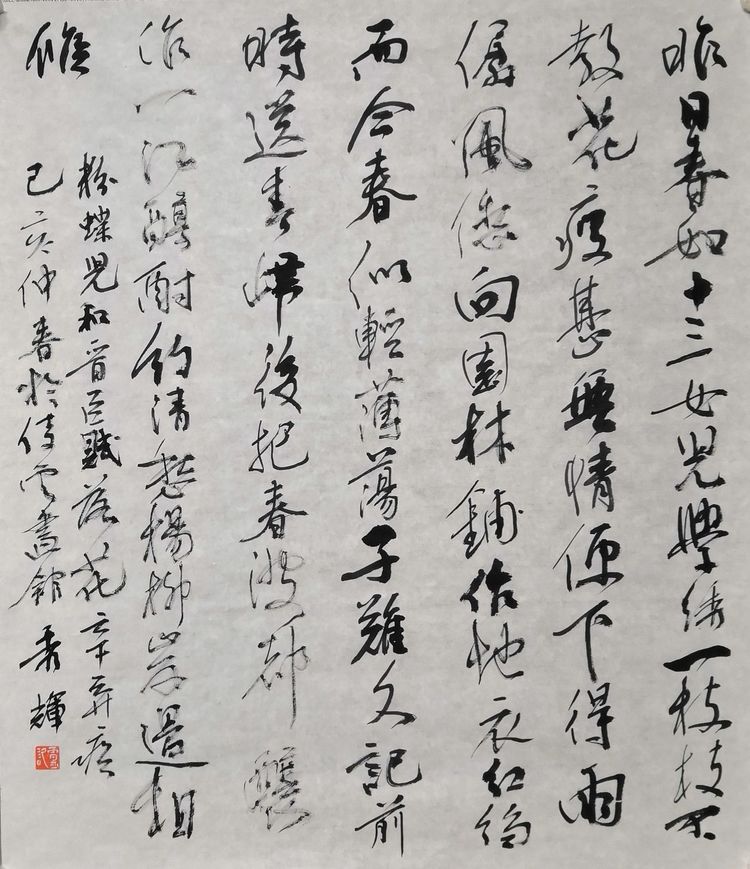 昨日春如十三女兒學綉一枝枝不
教花瘦甚無情便下得雨
僝風僽向園林鋪作地衣紅縐
而今春似輕薄蕩子難久記前
時送春歸後把春波都釀
作一江醇酎約清愁楊柳岸邊相
候
粉蝶兒和晋臣賦落花辛弃疾
己亥仲春於倚云書館秀輝